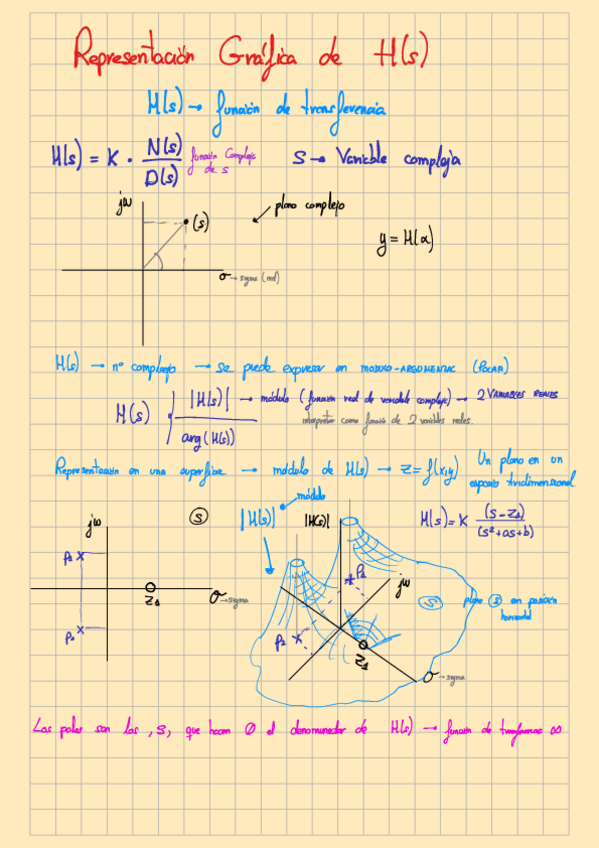 Representación Gráfica de H(s)
H(s) → función de transferencia
H(s) = K · N(s) / D(s) función Compleja de s
S → Variable compleja
jω
(s)
plano complejo
y = H(α)
σ → sigma (real)
H(s) → nº complejo → se puede expresar en MODULO-ARGUMENTAL (POLAR)
H(s) |H(s)| → módulo (función real de variable compleja) → 2 VARIABLES REALES
interpretar como función de 2 variables reales.
arg(H(s))
Representación en una superficie → módulo de H(s) → z = f(x,y) Un plano en un
espacio tridimensional
módulo
jω
(s)
|H(s)|
|H(s)|
H(s) = K (s-z₁) / (s²+as+b)
P₁
z₁
σ → sigma
P₂
P₁
jω
(s)
plano (s) en posición
horizontal
P₂
z₁
σ → sigma
Los polos son las, s, que hacen 0 el denominador de H(s) → función de ∞